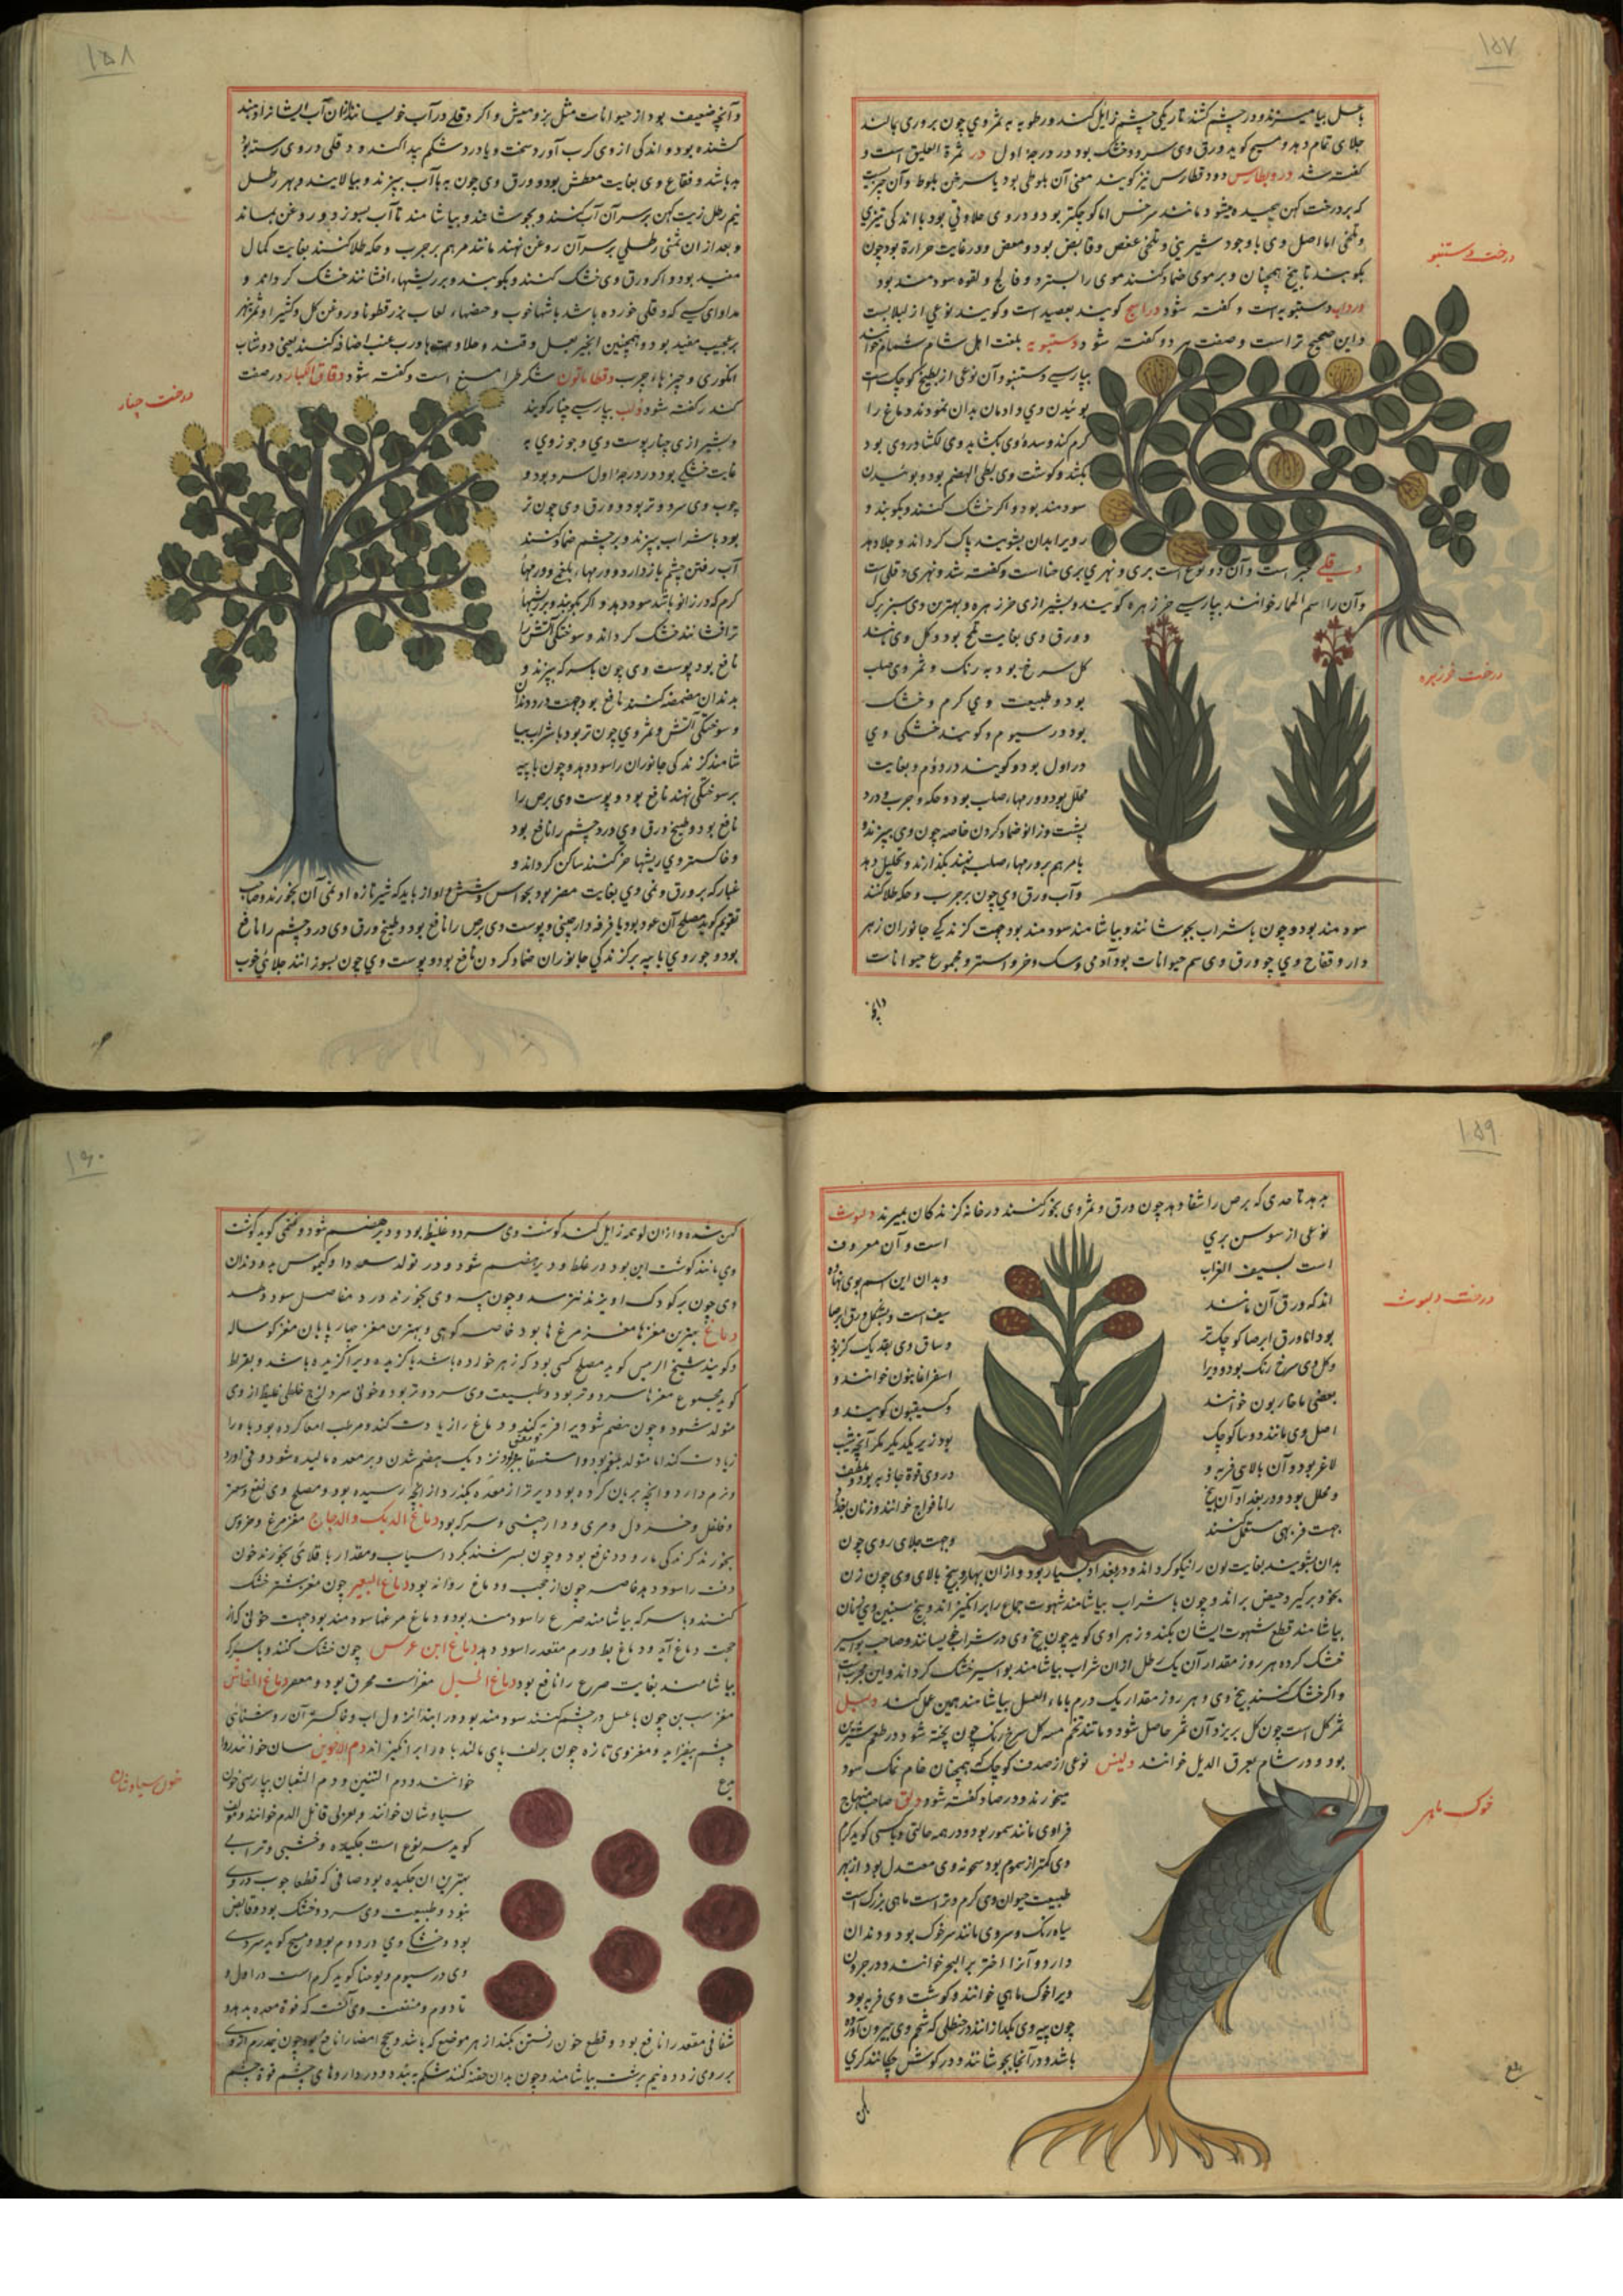 ۱۵۷
بعسل بیامیزند و در چشم کشند تاریکی چشم زایل کند و رطوبه به ثمر وی چون بر وری بمالند
جلای تمام دهد و مسیح کوید ورق وی سرد و خشک بود در درجهٔ اول در ثمرة العلیق است و
کفته شد درو بطارس دود قطارس نیز کویند معنی آن بلوطی بود یا سرخس بلوط و آن چیزیست
که بر درخت کهن پیچیده میشود مانند سرخس اما کوچکتر بود و در وی حلاوتی بود با اندکی تیزی
و تلخی اما اصل وی با وجود شیرینی و تلخی عفص و قابض بود و معفن و در غایت حرارة بود چون
بکوبند تا بیخ همچنان و بر موی ضماد کنند موی را بسترد و فالج و لقوه سودمند بود
ورداب دستبویه است و کفته شود دراسج کویند بعصید است و کویند نوعی از لبلابست
و این صحیح تر است و صفت هر دو کفته شود دستبویه بلغت اهل شام شمام خوانند
بپارسی دستنبو و آن نوعی از بطیخ کوچک است
بوئیدن وی و ادمان بدان نمودن دماغ را
کرم کند و سدهٔ وی بکشاید وی لکشا در وی بود
بکشد و کوشت وی بطی الهضم بود و بوئیدن
سودمند بود و اکر خشک کنند و بکوبند و
رویرا بدان بشویند پاک کرداند و جلا دهد
درخت دستنبو
دفلی حبن است و آن دو نوع است بری و نهری بری حنا است و کفته شد و نهری دفلی است
و آن را سم الحمار خوانند بپارسی خرزهره کویند و بشیرازی خرزهره و بهترین وی سبز بزرک
و ورق وی بغایت تلخ بود و کل وی مانند
کل سرخ بود به رنک و ثمر وی صلب
بود و طبیعت وی کرم و خشک
بود در سیوم و کویند خشکی وی
در اول بود و کویند در دوم و بغایت
محلل بود و ورمهاء صلب بود و حکه و جرب و درد
پشت و زانو ضماد کردن خاصه چون وی بپزند و
با مرهم بر ورمهاء صلب نهند بکدازند و تحلیل دهد
و آب ورق وی چون بر جرب و حکه طلا کنند
درخت خرزهره
سودمند بود و چون با شراب بجوشانند و بیاشامند سودمند بود جهت کزندکی جانوران زهر
دار و فقاح وی چو ورق وی سم حیوانات بود آدمی و سک و خر و استر و مجموع حیوانات
۱۵۸
و آنچه ضعیف بود از حیوانات مثل بز و میش و اکر دفلی در آب خویسانند ازان آب ایشانرا دهند
کشنده بود و اندکی از وی کرب آورد سخت و باد در شکم پیدا کند و دفلی در وی رستنبو
به باشد و فقاع وی بغایت معطش بود و ورق وی چون به با آب بپزند و بپالایند و بهر رطل
نیم رطل زیت کهن بر سر آن آب کنند و بجوشانند و بیاشامند تا آب بسوزد و روغن بماند
و بعد از ان ثمنی رطلی بر سر آن روغن نهند مانند مرهم بر جرب و حکه طلا کنند بغایت کمال
مفید بود و اکر ورق وی خشک کنند و بکوبند و بر ریشهاء افشانند خشک کرداند و
مداوای کسی که دفلی خورده باشد باشهاء خوب و حقنهاء لعاب بزرقطونا و روغن کل و کثیرا و ثمر پنجر
بر عجیب مفید بود و همچنین انجیر بعسل و قند و حلاوتها و رب عنب اضافه کنند یعنی دوشاب
انکوری و چیزهاء چرب دقطاماتون مشکطرامشیع است و کفته شود دقاق الکبار در صفت
کندر کفته شود دلب بپارسی چنار کویند
و بشیرازی چنار پوست وی و جوز وی به
غایت خشکی بود در درجهٔ اول سرد بود و
چوب وی سرد و تر بود و ورق وی چون تر
بود با شراب بپزند و بر چشم ضماد کنند
آب رفتن چشم باز دارد و ورمهاء بلغمی و ورمها
کرم که در زانو باشد سود دهد و اکر بکوبند و بر ریشهاء
تر افشانند خشک کرداند و سوختکی آتش را
نافع بود پوست وی چون با سرکه بپزند و
بدندان مضمضه کنند نافع بود جهت درد دندان
و سوختکی آتش و ثمر وی چون تر بود با شراب بیا
شامند کزندکی جانوران را سود دهد و چون با پیه
بر سوختکی نهند نافع بود و پوست وی برص را
نافع بود و طبیخ ورق وی درد چشم را نافع بود
و خاکستر وی ریشها خر کنند ساکن کرداند و
درخت چنار
غبار که بر ورق و نمی وی بغایت مضر بود بحواس و شش و آواز باید که شیر تازه او نمی آن بخورند و صاحب
تقویم کوید مصلح آن عود بود با قرفه دارچینی و پوست وی برص را نافع بود و طبیخ ورق وی درد چشم را نافع
بود و جوز وی با پیه بر کزندکی جانوران ضماد کردن نافع بود و پوست وی چون بسوزانند جلائی خوب
۱۵۹
بدهد تا حدی که برص را شفا دهد چون ورق و ثمر وی بخور کنند در خانه کزندکان بمیرند دلبوث
نوعی از سوسن بری
است و آن معروف
است بسیف الغراب
و بدان این اسم بوی نهاده
اند که ورق آن مانند
سیف است و بشکل ورق ایرصا
بود اما ورق ایرصا کوچکتر
و ساق وی بقد یک کز بود
و کل وی سرخ رنک بود و ویرا
اسفراغانیون خوانند و
بعضی ماخاریون خوانند
و کسیفیون کویند و
اصل وی مانند دو سا کوچک
بود زیر یکدیکر مکر آنچه شیب
لاغر بود و آن بالای فربه و
در وی قوة جاذبه بود و ملطف
و محلل بود و در بغداد آن بیخ
را نافواح خوانند و زنان بغداد
جهت فربهی مستعمل کنند
و جهت جلای روی چون
درخت دلبوث
بدان بشویند بغایت لون را نیکو کرداند و در بغداد بسیار بود و ازان بهار و بیخ بالای وی چون زن
بخود برکیرد حیض براند و چون با شراب بیاشامند شهوت جماع را برانکیزاند و بیخ شیبین وی زنان
بیاشامند قطع شهوت ایشان بکند و زهراوی کوید چون بیخ وی در شراب خیسانند و صاحب بواسیر
خشک کرده هر روز مقدار آن یک رطل ازان شراب بیاشامد بواسیر خشک کرداند و این مجرب است
و اکر خشک کنند بیخ وی و هر روز مقدار یک درم با ماء العسل بیاشامند همین عمل کند دلیل
ثمر کل است چون کل بریزد آن ثمر حاصل شود و مانند تخم مسه کل سرخ رنک چون پخته شود در طعم شیرین
بود و در شام بعرق الدیل خوانند دلینس نوعی از صدف کوچک که همچنان خام نمک سود
میخورند و در صاد کفته شود دلق صاحب منهاج
فراوی مانند سمور بود و در همه حالتی و یاسی کوید کرم
وی کمتر از سموم بود سحونه وی معتدل بود از بهر
طبیعت حیوان وی کرم و تر است ماهی بزرک است
سیاه رنک و سر وی مانند سر خوک بود و دندان
دارد و آنرا اختر بر البحر خوانند و در جردان
ویرا خوک ماهی خوانند و کوشت وی فربه بود
چون پیه وی بکدازانند در حنظلی که شحم وی بیرون آورده
باشند و در آنجا بجوشانند و در کوش چکانند کری
خوک ماهی
۱۶۰
کهن شده و ازان لوحمه زایل کند کوشت وی سرد و غلیظ بود و دیر هضم شود و بعضی کوید کوشت
وی مانند کوشت این بود در غلظ و دیر هضم شود و در تولد سودا و کیموس بد و دندان
وی چون بر کودک آویزند نترسد و چون پیه وی بخورند درد مفاصل سود دهد
دماغ بهترین مغزها مغز مرغها بود خاصه کوهی و بهترین مغز چهارپایان مغز کوساله
و کویند شیخ الریس کوید مصلح کسی بود که زهر خورده باشد یا کزیده ویرا کزیده باشد و بقراط
کوید مجموع مغزها سرد و تر بود و طبیعت وی سرد و تر بود و خونی سرد لزج خلطی غلیظ از وی
متولد شود و چون هضم شود ویرا فربه کند و دماغ را زیادت کند و مرطب امعا کرده بود باه را
زیادت کند اما متولد بلغم بود و استسقا بزودی نزدیک هضم شدن و بر معده مالیده شود و قی آورد
و نرم دارد و آنچه بریان کرده بود دیرتر از معده بکذرد از آنچه رسیده بود و مصلح وی نعنع و صعتر
و فلفل و خردل و مری و دارچینی و سرکه بود دماغ الدیک والدجاج مغز مرغ و خروس
بخورند کزندکی مار و دد نافع بود و چون بسرشند بکرد اسیاب و مقدار باقلائی بخورند خون
رفتن را سود دهد خاصه چون از حجب دماغ روانه بود دماغ البعیر چون مغز شتر خشک
کنند و با سرکه بیاشامند صرع را سودمند بود و دماغ مرغها سودمند بود جهت خونی که از
حجب دماغ آید و دماغ بط ورم مقعد را سود دهد دماغ ابن عرس چون خشک کنند و با سرکه
بیاشامند بغایت صرع را نافع بود دماغ الجمل مغز است محرق بود و معصر دماغ الخفاش
مغز شب پره چون با عسل در چشم کنند سودمند بود در ابتدا نزول آب و خاکستر آن روشنائی
چشم بیفزاید و مغز وی تازه چون بر کف پای بمالند باه را برانکیزاند دم الاخوین سان خوانند و ار
خوانند و دم التنین و دم الثعبان بپارسی خون
سیاوشان خوانند و بعربی قاتل الدم خوانند و مولف
کوید سه نوع است چکیده و خشبی و ترابی
بهترین آن چکیده بود صافی که قطعا چوب در وی
نبود و طبیعت وی سرد و خشک بود و قابض
بود و خشکی وی در دوم بود و مسیح کوید سردی
وی در سیوم و یوحنا کوید کرم است در اول و
تا دوم و منفعت وی آنست که قوة معده بدهد
خون سیاوشان
شقاقی مقعد را نافع بود و قطع خون رفتن بکند از هر موضع که باشد و سحج امعا را نافع بود چون نیم درم از وی
بر روی زرده نیم برشت بیاشامند و چون بدان حقنه کنند شکم ببندد و در داروهای چشم قوة چشم